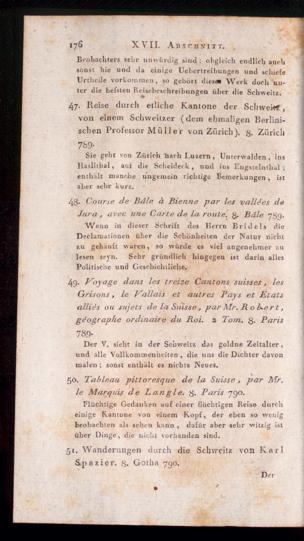 176 XVII. ABSCHNITT.
Beobachters sehr unwürdig sind; obgleich endlich auch
sonst hie und da einige Uebertreibungen und schiefe
Urtheile vorkommen, so gehört dieses Werk doch un-
ter die besten Reisebeschreibungen über die Schweitz.
47. Reise durch etliche Kantone der Schweitz,
von einem Schweitzer (dem ehmaligen Berlini-
schen Professor Müller von Zürich). 8. Zürich
789.
Sie geht von Zürich nach Luzern, Unterwalden, ins
Haslithal, auf die Scheideck, und ins Engstelnthal;
enthält manche ungemein richtige Bemerkungen, ist
aber sehr kurz.
48. Course de Bâle à Bienne par les vallées de
Jura, avec une Carte de la route. 8. Bâle 789.
Wenn in dieser Schrift des Herrn Bridels die
Declamationen über die Schönheiten der Natur nicht
zu gehäuft waren, so würde es viel angenehmer zu
lesen seyn. Sehr gründlich hingegen ist darin alles
Politische und Geschichtliche.
49. Voyage dans les treize Cantons suisses, les
Grisons, le Vallais et autres Pays et Etats
alliés ou sujets de la Suisse, par Mr. Robert,
géographe ordinaire du Roi. 2 Tom. 8. Paris
789.
Der V. sieht in der Schweitz das goldne Zeitalter,
und alle Vollkommenheiten, die uns die Dichter davon
malen; sonst enthält es nichts Neues.
50. Tableau pittoresque de la Suisse, par Mr.
le Marquis de Langle. 8. Paris 790.
Flüchtige Gedanken auf einer flüchtigen Reise durch
einige Kantone von einem Kopf, der eben so wenig
beobachten als sehen kann, dafür aber sehr witzig ist
über Dinge, die nicht vorhanden sind.
51. Wanderungen durch die Schweitz von Karl
Spazier. 8. Gotha 790.
Der